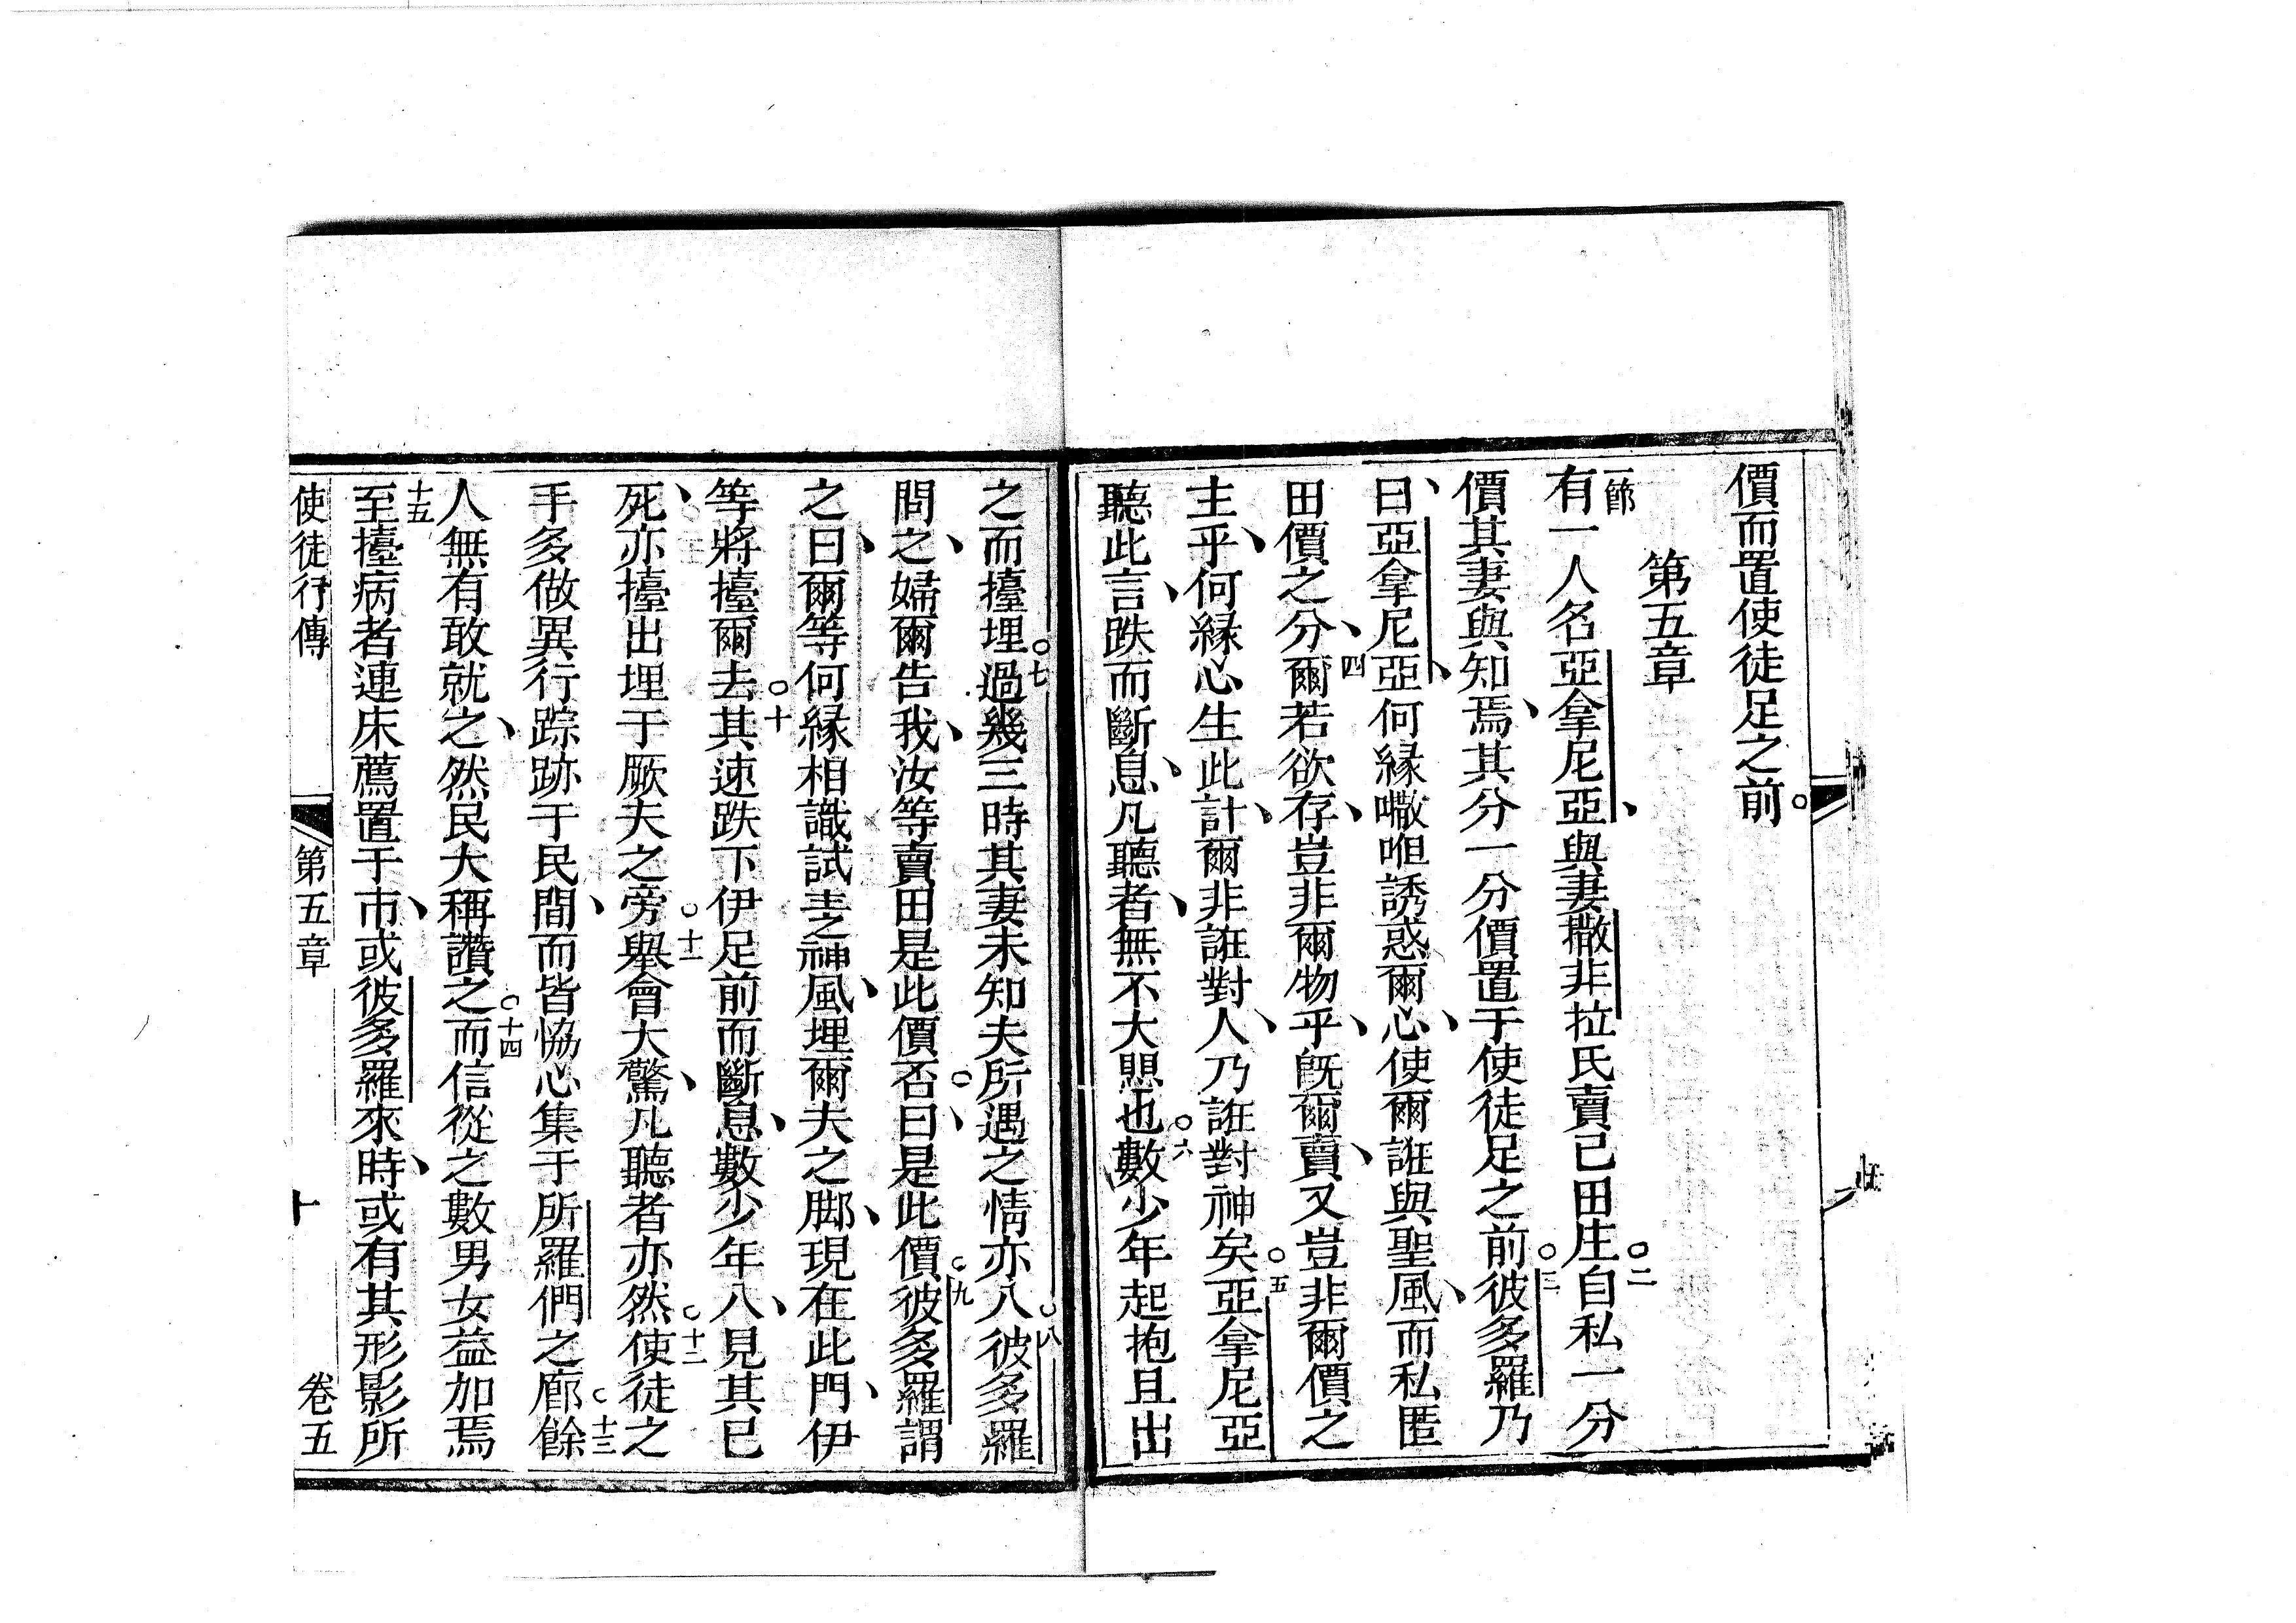 價而置使徒足之前。
第五章
一節有一人名亞拿尼亞、與妻撒非拉氏賣己田庄○二自私一分
價其妻與知焉、其分一分價置于使徒足之前○三彼多羅乃
曰、亞拿尼亞、何緣嚫咀誘惑爾心、使爾誑與聖風、而私匿
田價之分、四爾若欲存、豈非爾物乎、旣爾賣、又豈非爾價之
主乎、何緣心生此計、爾非誑對人、乃誑對神矣○五亞拿尼亞
聽此言、跌而斷息、凡聽者、無不大思也○六數少年起抱且出
之而擡埋○七過幾三時其妻未知夫所遇之情亦入○八彼多羅
問之、婦爾告我、汝等賣田是此價否○曰、是此價○九彼多羅謂
之曰、爾等何緣相識試主之神風、埋爾夫之脚、現在此門、伊
等將擡爾去○十其速跌下伊足前而斷息、數少年入、見其已
死、亦擡出埋于厥夫之旁○十一舉會大驚、凡聽者亦然○十二使徒之
手多做異行踪跡于民間、而皆恊心集于所羅們之廊○十三餘
人無有敢就之、然民大稱讚之○十四而信從之數男女益加焉
十五至擡病者連床薦置于市、或彼多羅來時、或有其形影所
使徒行傳 第五章 十 卷五